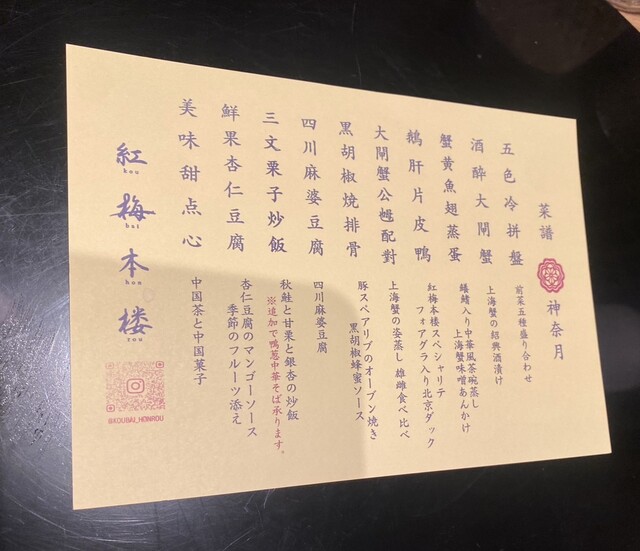 菜譜 神奈月
五色冷拼盤
前菜五種盛り合わせ
酒醉大閘蟹
上海蟹の紹興酒漬け
蟹黄魚翅蒸蛋
鱶鰭入り中華風茶碗蒸し
上海蟹味噌あんかけ
鵝肝片皮鴨
紅梅本楼スペシャリテ
フォアグラ入り北京ダック
大閘蟹公雌配對
上海蟹の姿蒸し 雄雌食べ比べ
黒胡椒焼排骨
豚スペアリブのオーブン焼き
黒胡椒蜂蜜ソース
四川麻婆豆腐
四川麻婆豆腐
三文栗子炒飯
秋鮭と甘栗と銀杏の炒飯
※追加で鴨葱中華そば承ります。
鮮果杏仁豆腐
杏仁豆腐のマンゴーソース
季節のフルーツ添え
美味甜点心
中国茶と中国菓子
紅梅本楼
hou
bai
hon
rou
@KOUBAI_HONROU